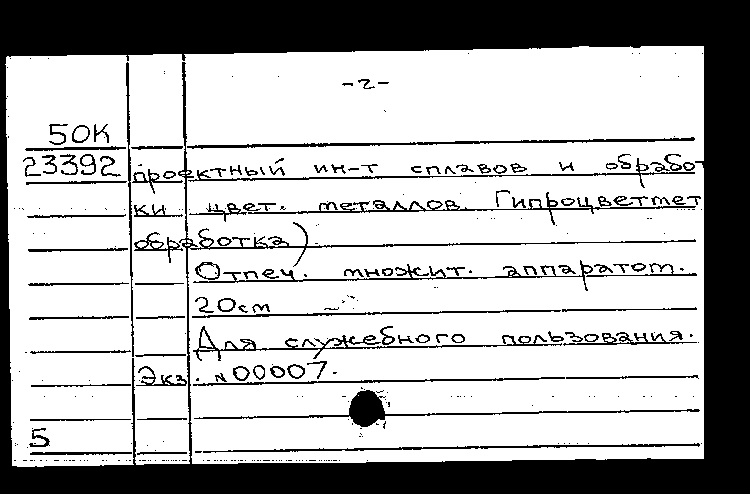 -2-
50К
23392 проектный ин-т сплавов и обработ
ки цвет. металлов. Гипроцветмет
обработка)
Отпеч. множит. аппаратом.
20см
Для служебного пользования.
Экз. №00007.
5